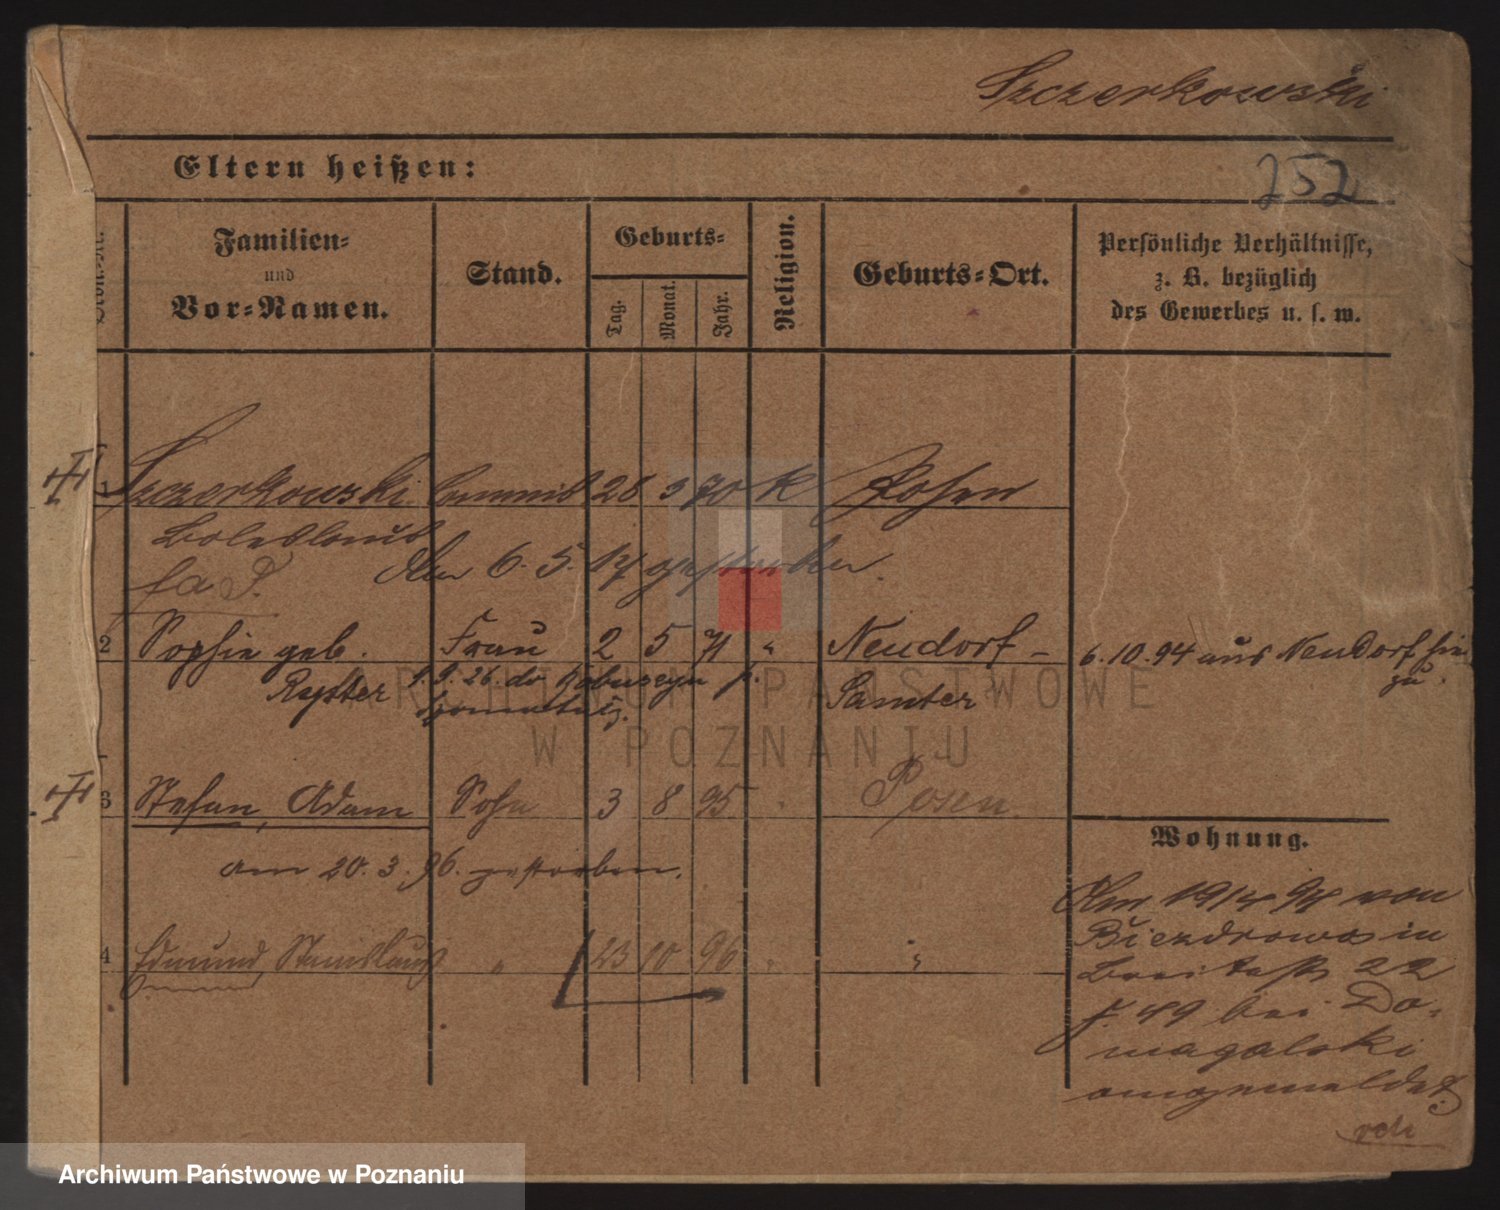 Szczerkowski
252
Eltern heißen:
Familien- und Vor-Namen.
Stand.
Geburts-
Tag. Monat. Jahr.
Religion.
Geburts-Ort.
Persönliche Verhältnisse,
z. B. bezüglich
des Gewerbes u. s. w.
1 Szczerkowski Commis 28 3 70 K Posen
Boleslaus
Am 6. 5. 17 gestorben.
2 Sophie geb. Frau 2 5 71 " Neudorf - 6.10.94 aus Neudorf hier
zu.
1.9.26. do p.
Samter
3 Stefan, Adam Sohn 3 8 95 " Posen
am 20. 3. 96. gestorben.
4 Edmund, Stanislaus " 23 10 96 " "
Wohnung.
Am von
Biezdrowo in
Breitestr 22
bei Do-
magalski
angemeldet
ARCHIWUM PAŃSTWOWE
W POZNANIU
Archiwum Państwowe w Poznaniu